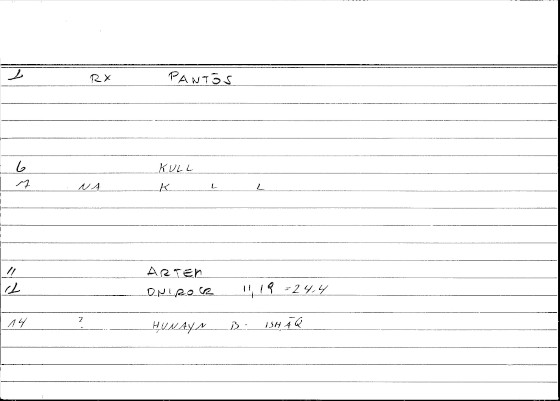 1 RX PANTŌS
6 KULL
7 NA K L L
11 ARTEM
12 ONIROCR 11,19 = 24.4
14 ? HUNAYN B. ISHĀQ